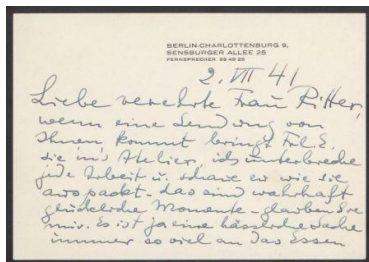 BERLIN-CHARLOTTENBURG 9,
SENSBURGER ALLEE 26
FERNSPRECHER
2. VIII 41
Liebe verehrte Frau Ritter,
wenn eine Sendung von
Ihnen kommt bringt Frl. S.
sie in's Atelier, ich unterbreche
jede Arbeit u. schaue zu wie sie
auspackt - das sind wahrhaft
glückliche Momente - glauben Sie
mir. Es ist ja eine hässliche Sache
immer so viel an das Essen